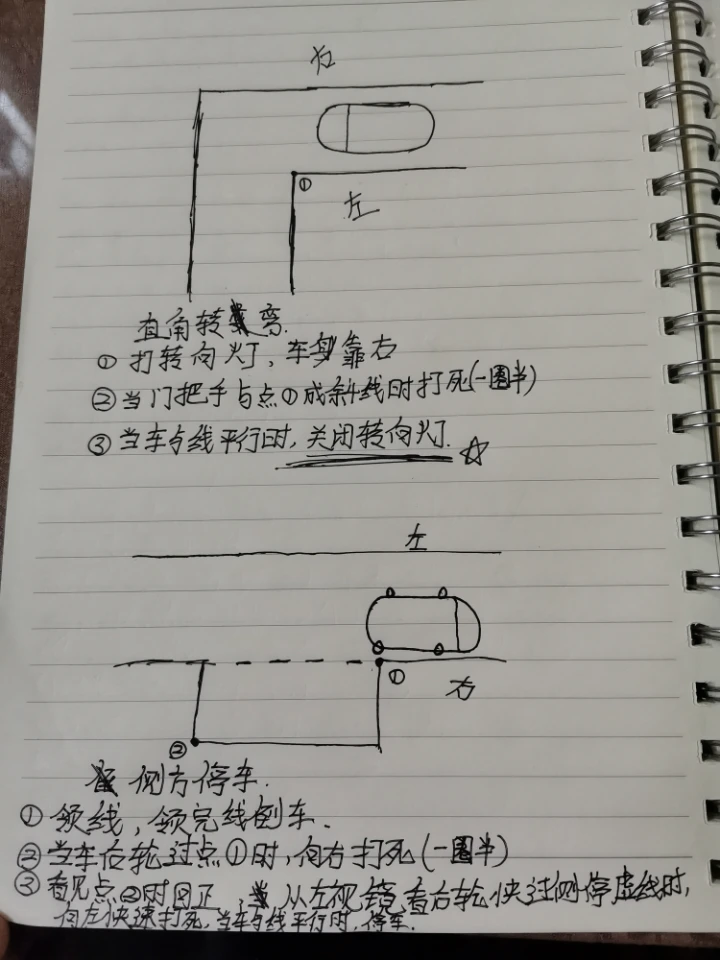 右
①
左
直角转弯.
① 打转向灯，车身靠右
② 当门把手与点①成斜线时打死(一圈半)
③ 当车与线平行时，关闭转向灯. ☆
左
①
右
②
侧方停车.
① 领线，领完线倒车.
② 当车右轮过点①时，向右打死(一圈半)
③ 看见点②时回正，从左视镜看右轮快过侧停虚线时，
向左快速打死，当车与线平行时，停车.